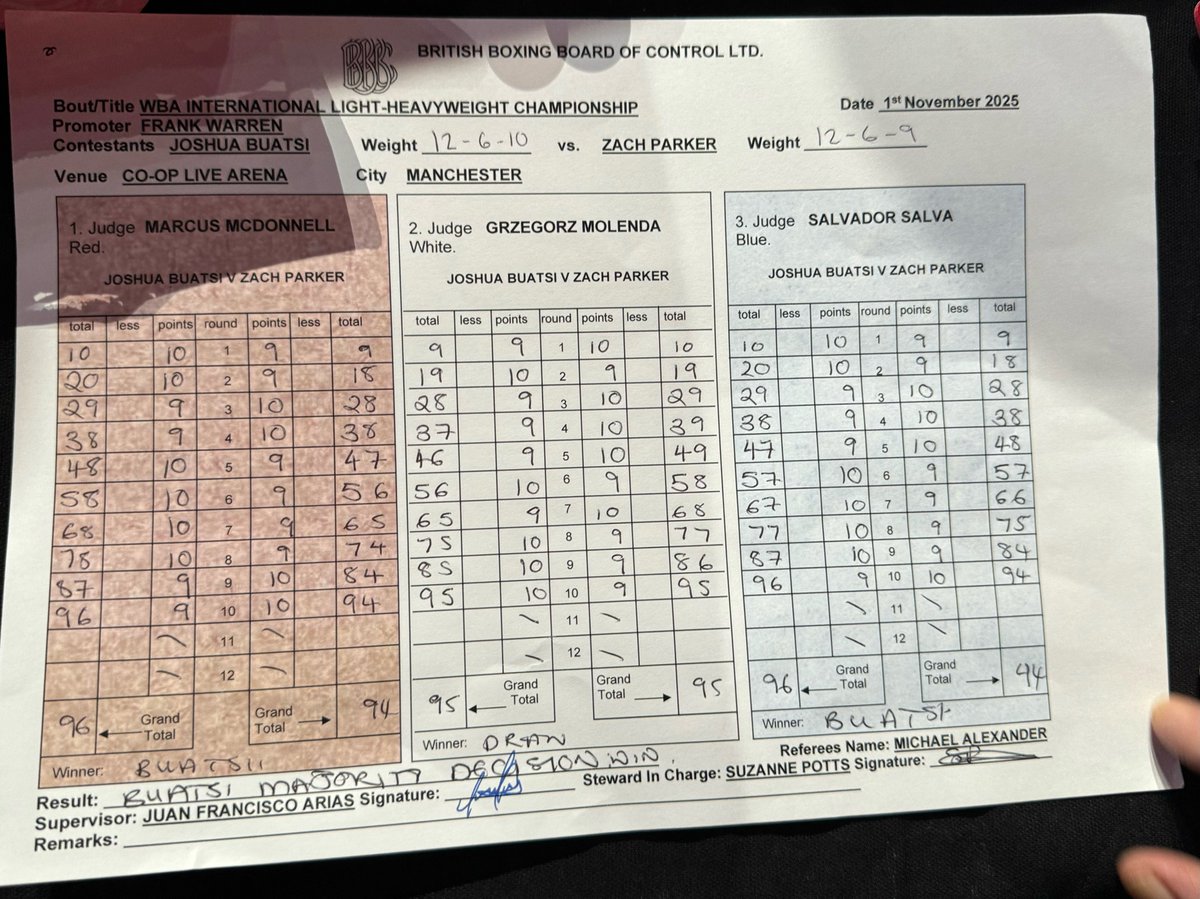 BBBC BRITISH BOXING BOARD OF CONTROL LTD.
Bout/Title WBA INTERNATIONAL LIGHT-HEAVYWEIGHT CHAMPIONSHIP Date 1st November 2025
Promoter FRANK WARREN
Contestants JOSHUA BUATSI Weight 12-6-10 vs. ZACH PARKER Weight 12-6-9
Venue CO-OP LIVE ARENA City MANCHESTER
1. Judge MARCUS MCDONNELL
Red.
JOSHUA BUATSI V ZACH PARKER
total less points round points less total
10 10 1 9 9
20 10 2 9 18
29 9 3 10 28
38 9 4 10 38
48 10 5 9 47
58 10 6 9 56
68 10 7 9 65
78 10 8 9 74
87 9 9 10 84
96 9 10 10 94
\ 11 \
\ 12 \
96 Grand Total Grand Total 94
Winner: BUATSII
2. Judge GRZEGORZ MOLENDA
White.
JOSHUA BUATSI V ZACH PARKER
total less points round points less total
9 9 1 10 10
19 10 2 9 19
28 9 3 10 29
37 9 4 10 39
46 9 5 10 49
56 10 6 9 58
65 9 7 10 68
75 10 8 9 77
85 10 9 9 86
95 10 10 9 95
\ 11 \
\ 12 \
95 Grand Total Grand Total 95
Winner: DRAW
3. Judge SALVADOR SALVA
Blue.
JOSHUA BUATSI V ZACH PARKER
total less points round points less total
10 10 1 9 9
20 10 2 9 18
29 9 3 10 28
38 9 4 10 38
47 9 5 10 48
57 10 6 9 57
67 10 7 9 66
77 10 8 9 75
87 10 9 9 84
96 9 10 10 94
\ 11 \
\ 12 \
96 Grand Total Grand Total 94
Winner: BUATSI
Result: BUATSI MAJORITY DECISION WIN. Referees Name: MICHAEL ALEXANDER
Supervisor: JUAN FRANCISCO ARIAS Signature: Steward In Charge: SUZANNE POTTS Signature:
Remarks: